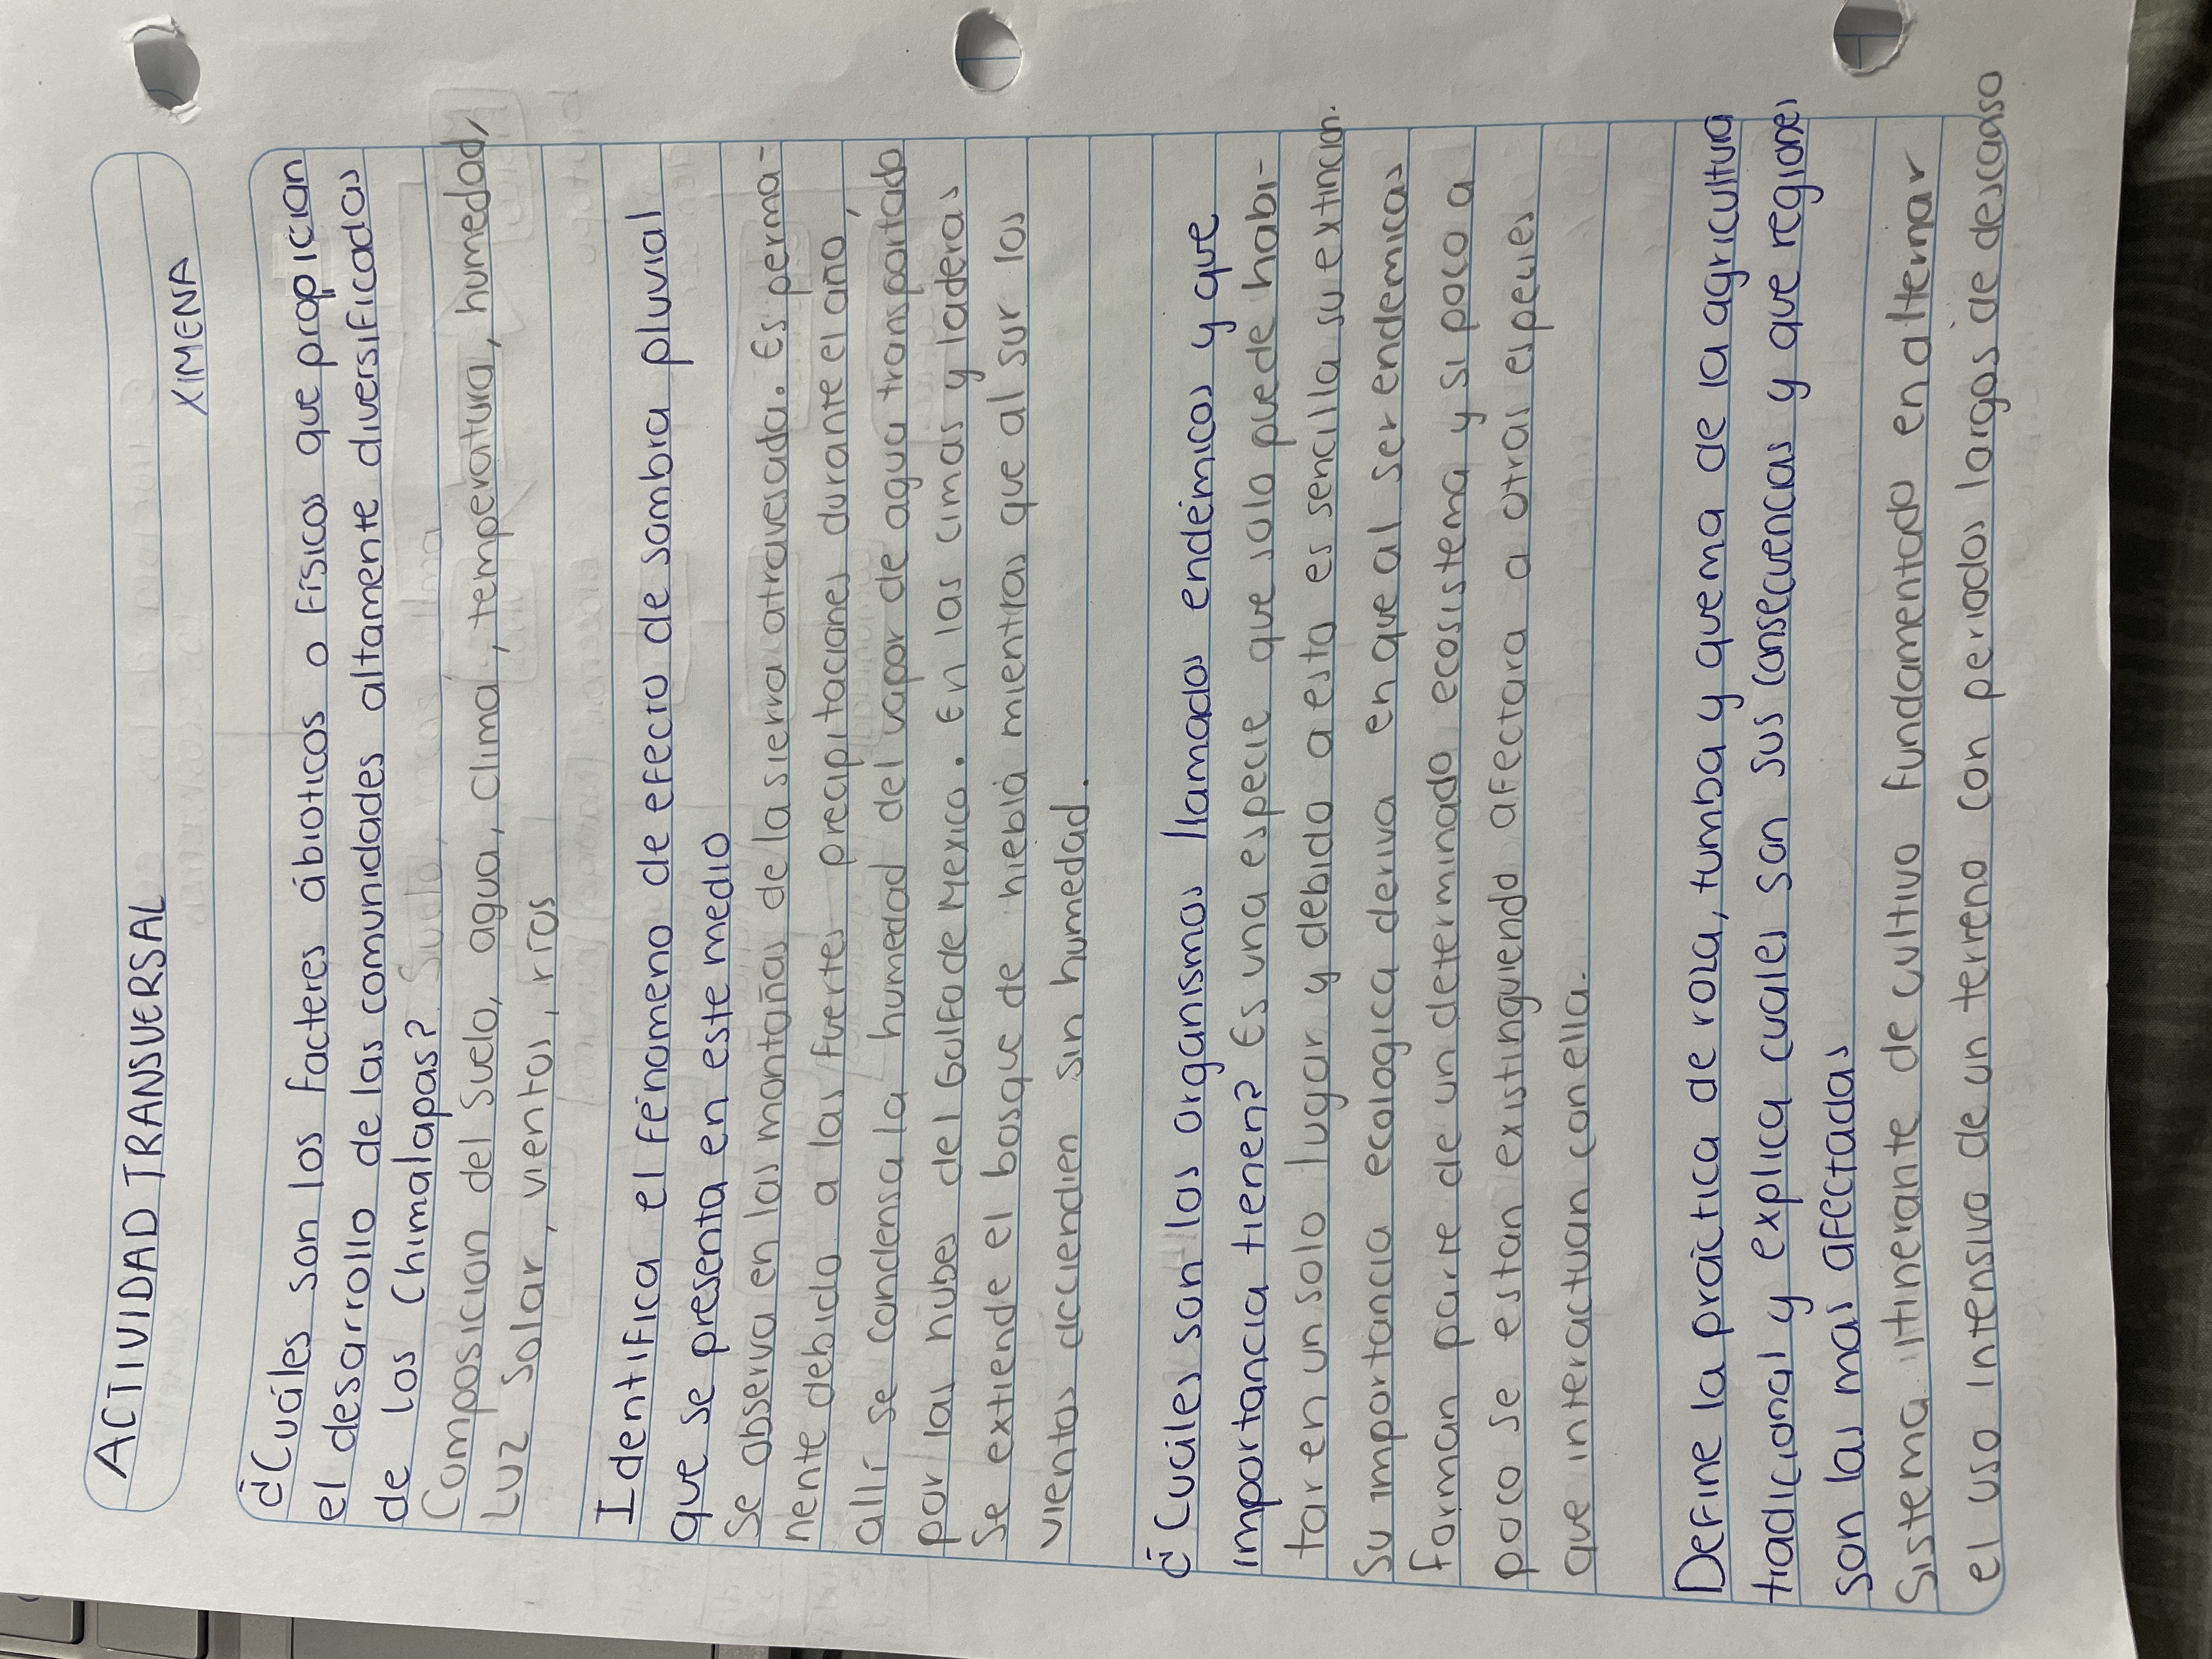 ACTIVIDAD TRANSVERSAL
XIMENA
¿Cuáles son los facteres ábioticos o físicos que propician
el desarrollo de las comunidades altamente diversificadas
de los Chimalapas?
Composicion del suelo, agua, clima, temperatura, humedad,
Luz solar, vientos, ríos
Identifica el fenomeno de efecto de sombra pluvial
que se presenta en este medio
Se observa en las montañas de la sierra atravesada. Es perma-
nente debido a las fuertes precipitaciones durante el año,
allí se condensa la humedad del vapor de agua transportado
por las nubes del Golfo de Mexico. En las cimas y laderas
Se extiende el bosque de niebla mientras que al sur los
vientos deccienden sin humedad.
¿Cuáles son los organismos llamados endémicos y que
importancia tienen? Es una especie que solo puede habi-
tar en un solo lugar y debido a esto es sencilla su extincion.
Su importancia ecologica deriva en que al ser endemicas
forman parte de un determinado ecosistema y si poco a
poco se estan existinguiendo afectara a otras especies
que interactuan con ella.
Define la práctica de roza, tumba y quema de la agricultura
tradicional y explica cuales son sus consecuencias y que regiones
son las mas afectadas
Sistema itinerante de cultivo fundamentado en alternar
el uso intensivo de un terreno con periodos largos de descanso